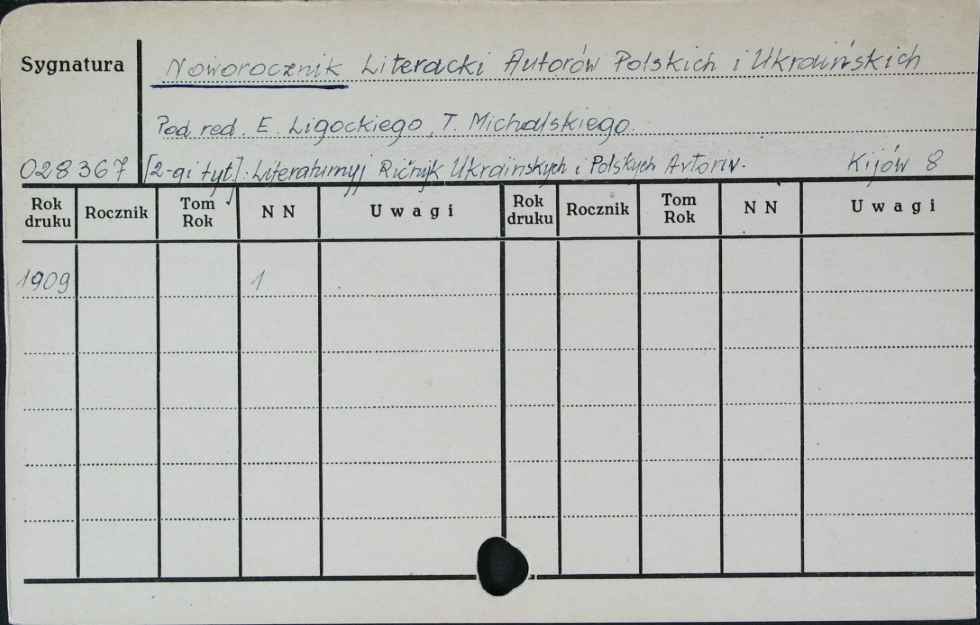 Sygnatura
Noworocznik Literacki Autorów Polskich i Ukraińskich
Pod red. E. Ligockiego, T. Michalskiego.
028367 [2-gi tyt]: Literaturnyj Ričnyk Ukrainskych i Polskych Avtoriv. Kijów 8
Rok druku Rocznik Tom Rok N N Uwagi Rok druku Rocznik Tom Rok N N Uwagi
1909 1